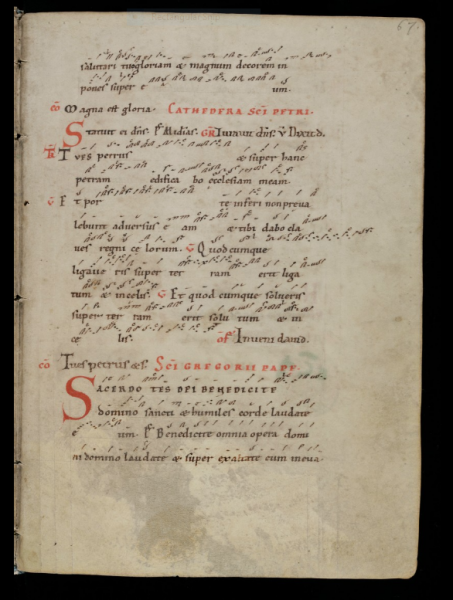 67.
salutari tuo gloriam & magnum decorem in
pones super e um.
co Magna est gloria. CATHEDERA SCI PETRI.
Statuit ei dns. Ps Misdias. GR Inveni dns. V Dixi d.
TR Tu es petrus & super hanc
petram edifica bo ecclesiam meam.
V Et por te inferi non preva
lebunt adversus e am & tibi dabo cla
ves regni ce lorum. V Quodcumque
ligave ris super ter ram erit liga
tum & in celis. V Et quodcumque solveris
super ter ram erit solu tum & in
ce lis. of Inveni david.
co Tu es petrus & s. SCI GREGORII PAPE.
SACERDOTES DEI BENEDICITE
domino sancti & humiles corde laudate
e um. Ps Benedicite omnia opera domi
ni domino laudate & super exaltate eum in